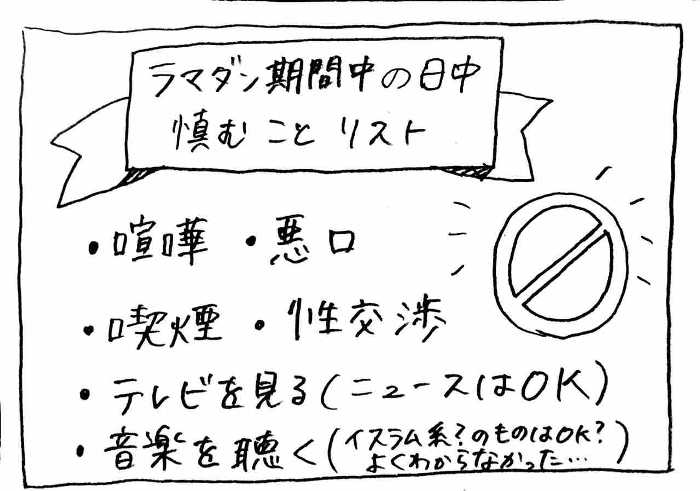 ラマダン期間中の日中
慎むことリスト
・喧嘩 ・悪口
・喫煙 ・性交渉
・テレビを見る(ニュースはOK)
・音楽を聴く(イスラム系?のものはOK?
よくわからなかった…)